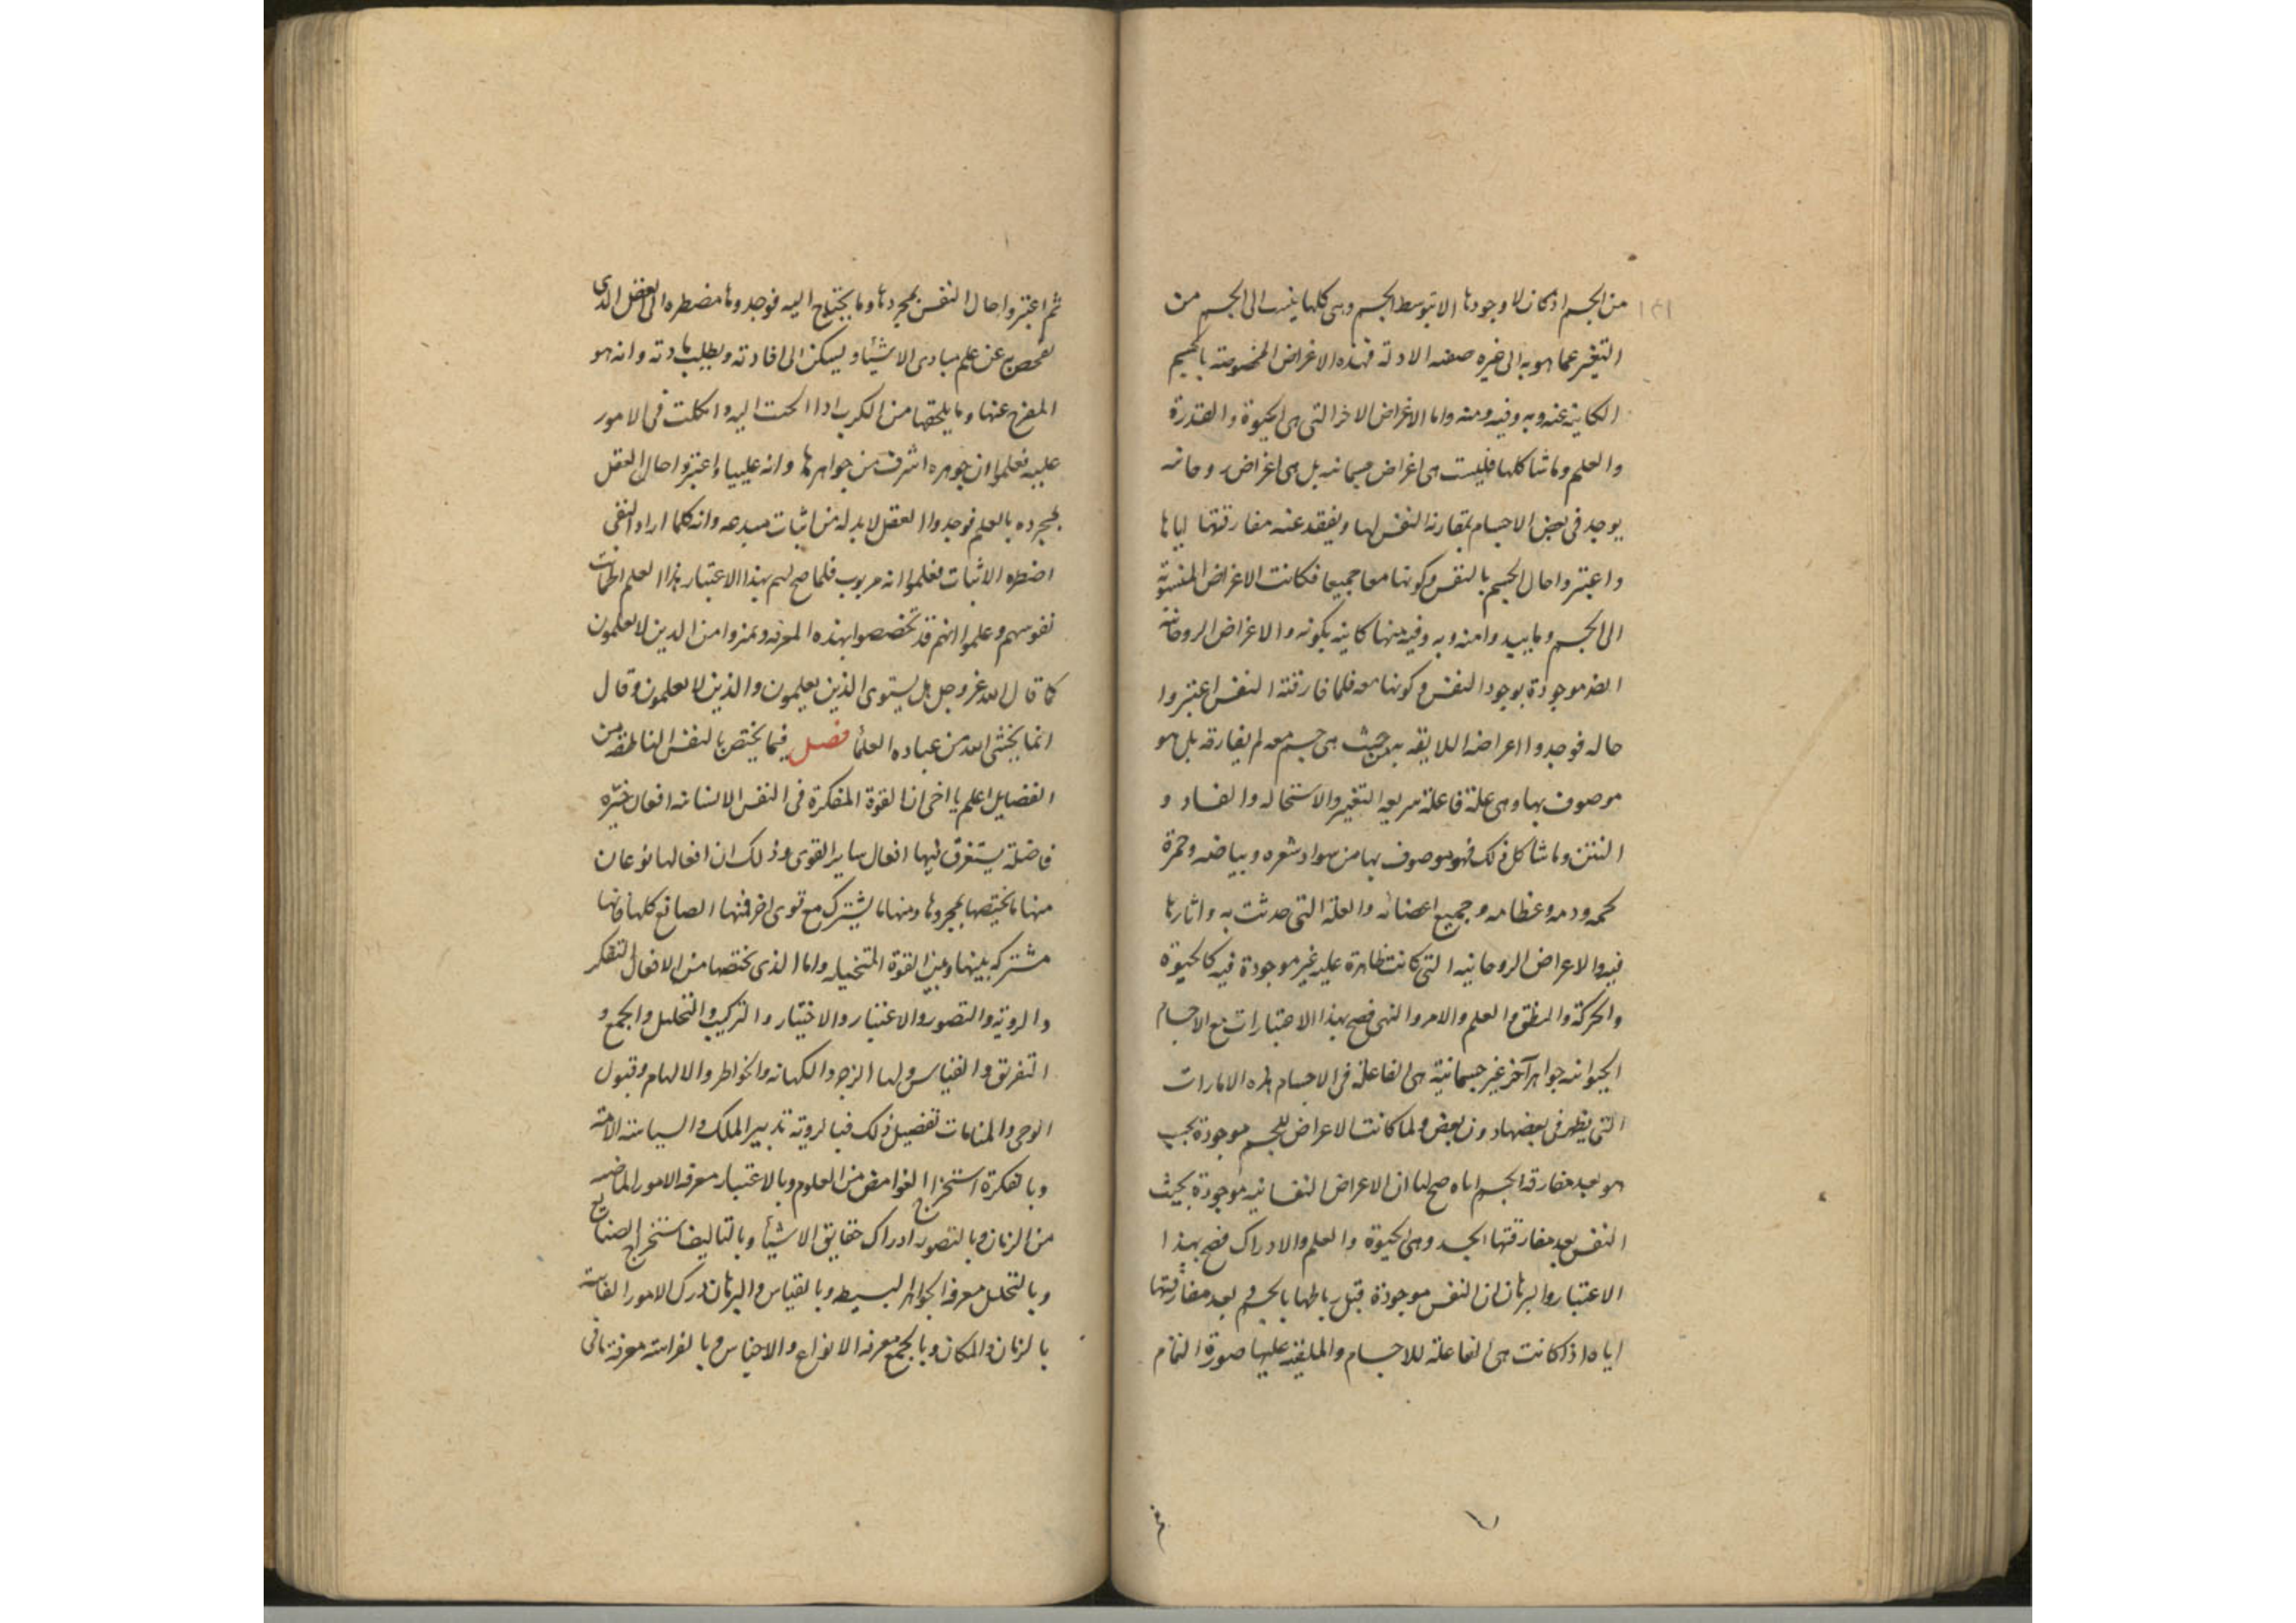 من الجسم اذ كان لا وجود لها الا بتوسط الجسم وهى كلها ينسب الى الجسم من
التغير عما هو به الى غيره صفه الادلة فهذه الاعراض المخصوصة بالجسم
الكاينه عنه وبه وفيه ومنه واما الاغراض الاخر التى هى الحيوة والقدرة
والعلم وما شاكلها فليست هى اغراض جسمانيه بل هى اغراض روحانيه
يوجد فى بعض الاجسام بمقارنة النفس لها ويفقد عند مفارقتها اياها
واعتبروا حال الجسم بالنفس وكونها معا جميعا فكانت الاعراض المنسوبة
الى الجسم وما يبدوا منه وبه وفيه منها كاينه بكونه والاعراض الروحانية
ايضا موجودة بوجود النفس وكونها معه فلما فارقته النفس اعتبروا
حاله فوجدوا اعراضه اللايقه به من حيث هى جسم معه لم يفارقه بل هو
موصوف بها وهى علة فاعلة سريعه التغير والاستحاله والفساد و
النتن وما شاكل ذلك فهو موصوف بها من سواد شعره وبياضه وحمرة
لحمه ودمه وعظامه وجميع اعضائه والعلة التى حدثت به واثارها
فيه والاعراض الروحانيه التى كانت ظاهرة عليه غير موجودة فيه كالحيوة
والحركة والنطق والعلم والامر والنهى فصح بهذا الاعتبار ان مع الاجسام
الحيوانيه جواهر آخر غير جسمانية هى الفاعلة فى الاجسام هذه الامارات
التى يظهر فى بعضها دون بعض ولما كانت الاعراض للجسم موجودة بحسب
هو بعد مفارقة الجسم اياه صح لنا ان الاعراض النفسانيه موجودة بحيث
النفس بعد مفارقتها الجسد وهى الحيوة والعلم والادراك فصح بهذا
الاعتبار والبرهان ان النفس موجودة قبل رباطها بالجسم وبعد مفارقتها
اياه اذ كانت هى الفاعلة للاجسام والملقيه عليها صورة التمام
ثم
ثم اعتبروا حال النفس بمجردها وما يحتاج اليه فوجدوها مضطره الى العقل الذى
تفحص عن علم مبادى الاشياء ويسكن الى افادته ويطلب مادته وانه هو
المفرج عنها وما يلحقها من الكرب اذا التجت اليه واتكلت فى الامور
عليه فعلموا ان جوهره اشرف من جواهرها وانه عليها واعتبروا حال العقل
بمجرده بالعلم فوجدوا العقل لا بد له من اثبات مبدعه وانه كلما اراد النفى
اضطره الاثبات فعلموا انه مربوب فلما صح لهم بهذا الاعتبار هذا العلم اطمأنت
نفوسهم وعلموا انهم قد تخصصوا بهذه المعرفه وتميزوا من الذين لا يعلمون
كما قال الله عز وجل هل يستوى الذين يعلمون والذين لا يعلمون وقال
انما يخشى الله من عباده العلماء فصل فيما يختص بالنفس الناطقه من
الفضايل اعلم يا اخى ان القوة المفكرة فى النفس الانسانيه افعال خيره
فاضلة يستغرق فيها افعال ساير القوى وذلك ان افعالها نوعان
منها ما يختصها بمجردها ومنها ما يشترك مع قوى اخر فمنها الصنايع كلها فانها
مشتركه بينها وبين القوة المتخيله واما الذى يختصها من الافعال التفكر
والروية والتصور والاعتبار والاختيار والتركيب والتحليل والجمع و
التفريق والقياس ولها الزجر والكهانه والخواطر والالهام وقبول
الوحى والمنامات تفصيل ذلك فبالروية تدبير الملك والسياسة الامة
وبالفكرة استخراج الغوامض من العلوم وبالاعتبار معرفه الامور الماضيه
من الزمان وبالتصور ادراك حقايق الاشياء وبالتاليف استخراج الصنايع
وبالتحليل معرفة الجواهر البسيطه وبالقياس والبرهان درك الامور الغايبه
بالزمان والمكان وبالجمع معرفه الانواع والاجناس وبالفراسة معرفة ما فى